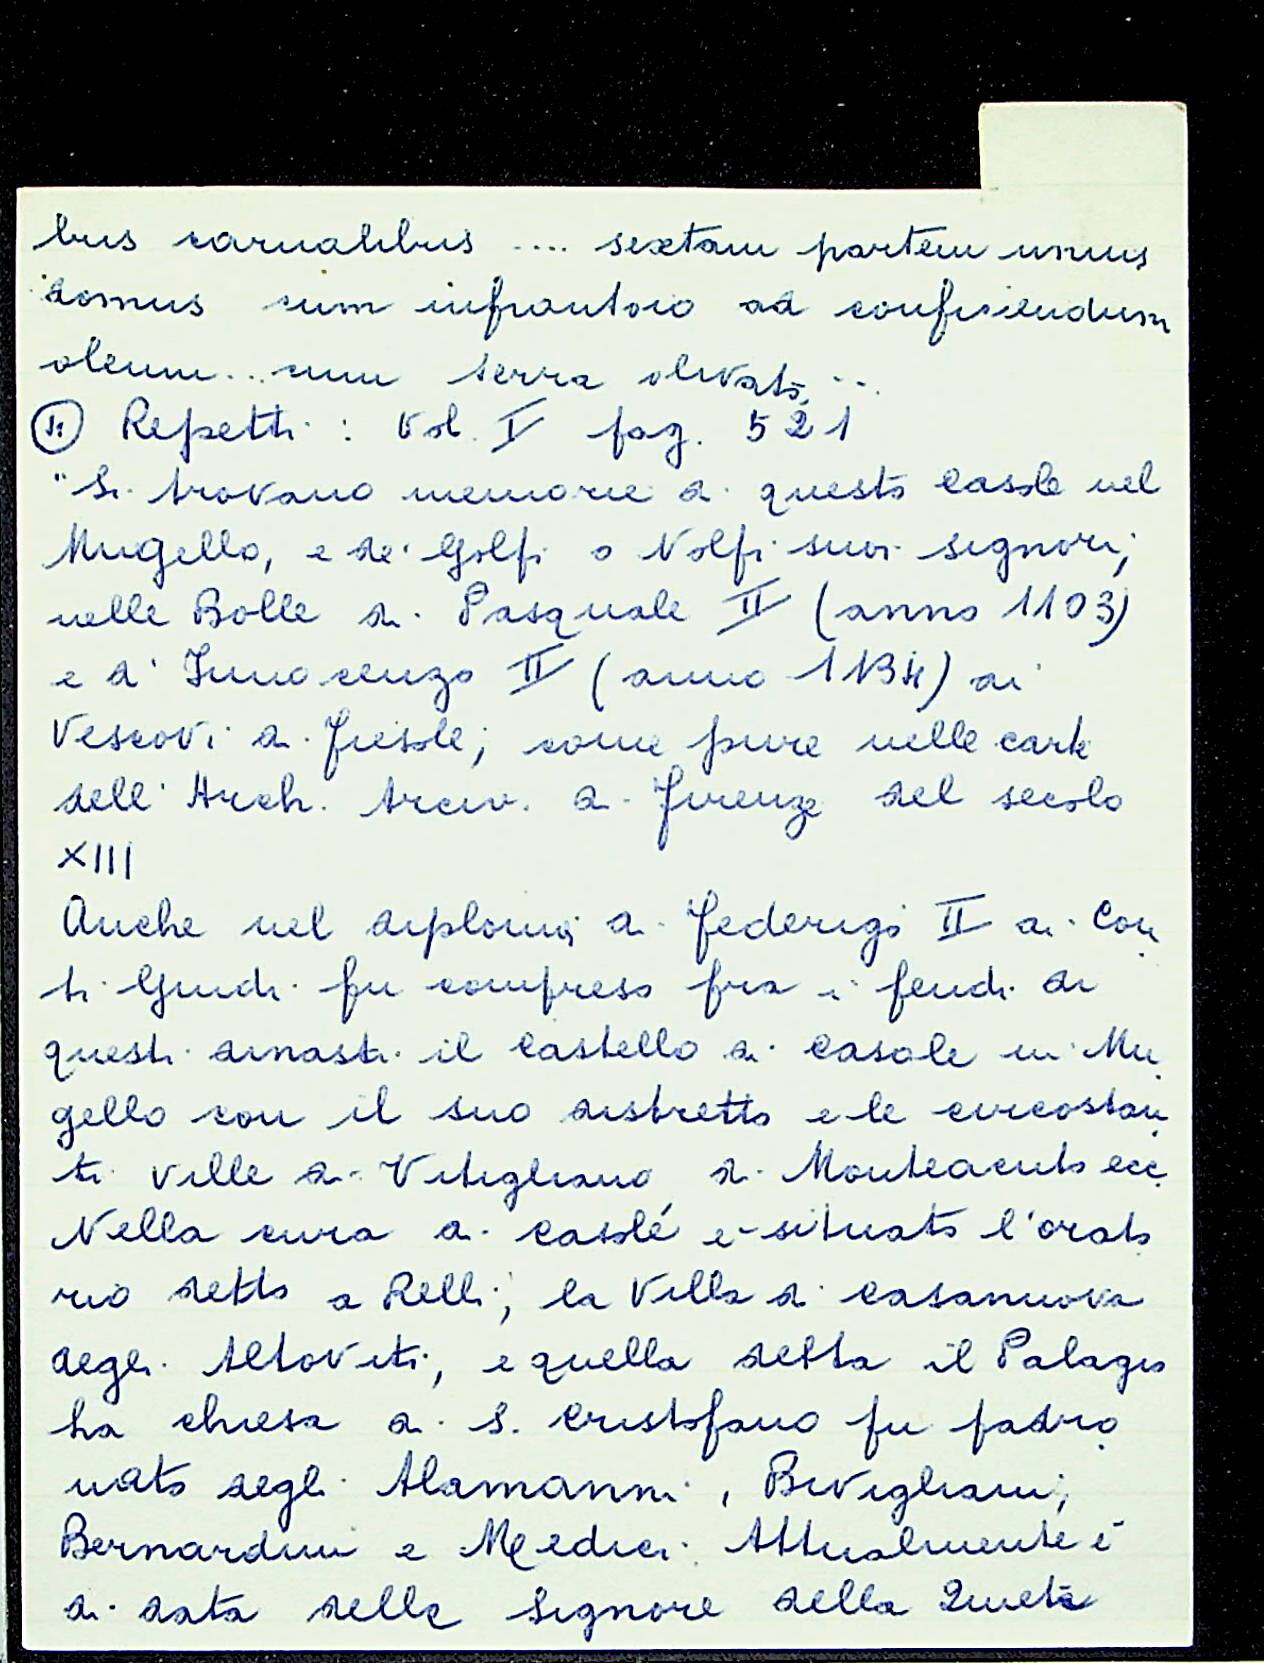 bus carnalibus .... sextam partem unius
domus cum infrantoio ad conficiendum
oleum... cum terra olivata ...
Repetti: Vol. I pag. 521
"Si trovano memorie di questo Casole nel
Mugello, e de' Golfi o Nolfi suoi signori;
nelle Bolle di Pasquale II (anno 1103)
e d' Innocenzo II (anno 1134) ai
Vescovi di Fiesole; come pure nelle carte
dell' Arch. Arciv. di Firenze del secolo
XIII
Anche nel diploma di Federigo II ai Con
ti Guidi fu compreso fra i feudi di
questi dinasti il Castello di Casole in Mu
gello con il suo distretto e le circostan
ti ville di Vitigliano, di Monteacuto ecc.
Nella cura di Casole è situato l'orato
rio detto a Relli; la Villa di Casanuova
degli Altoviti, e quella detta il Palagio
La chiesa di S. Cristofano fu padro
nato degli Alamanni, Bivigliani,
Bernardini e Medici. Attualmente è
di data delle Signore della Quiete